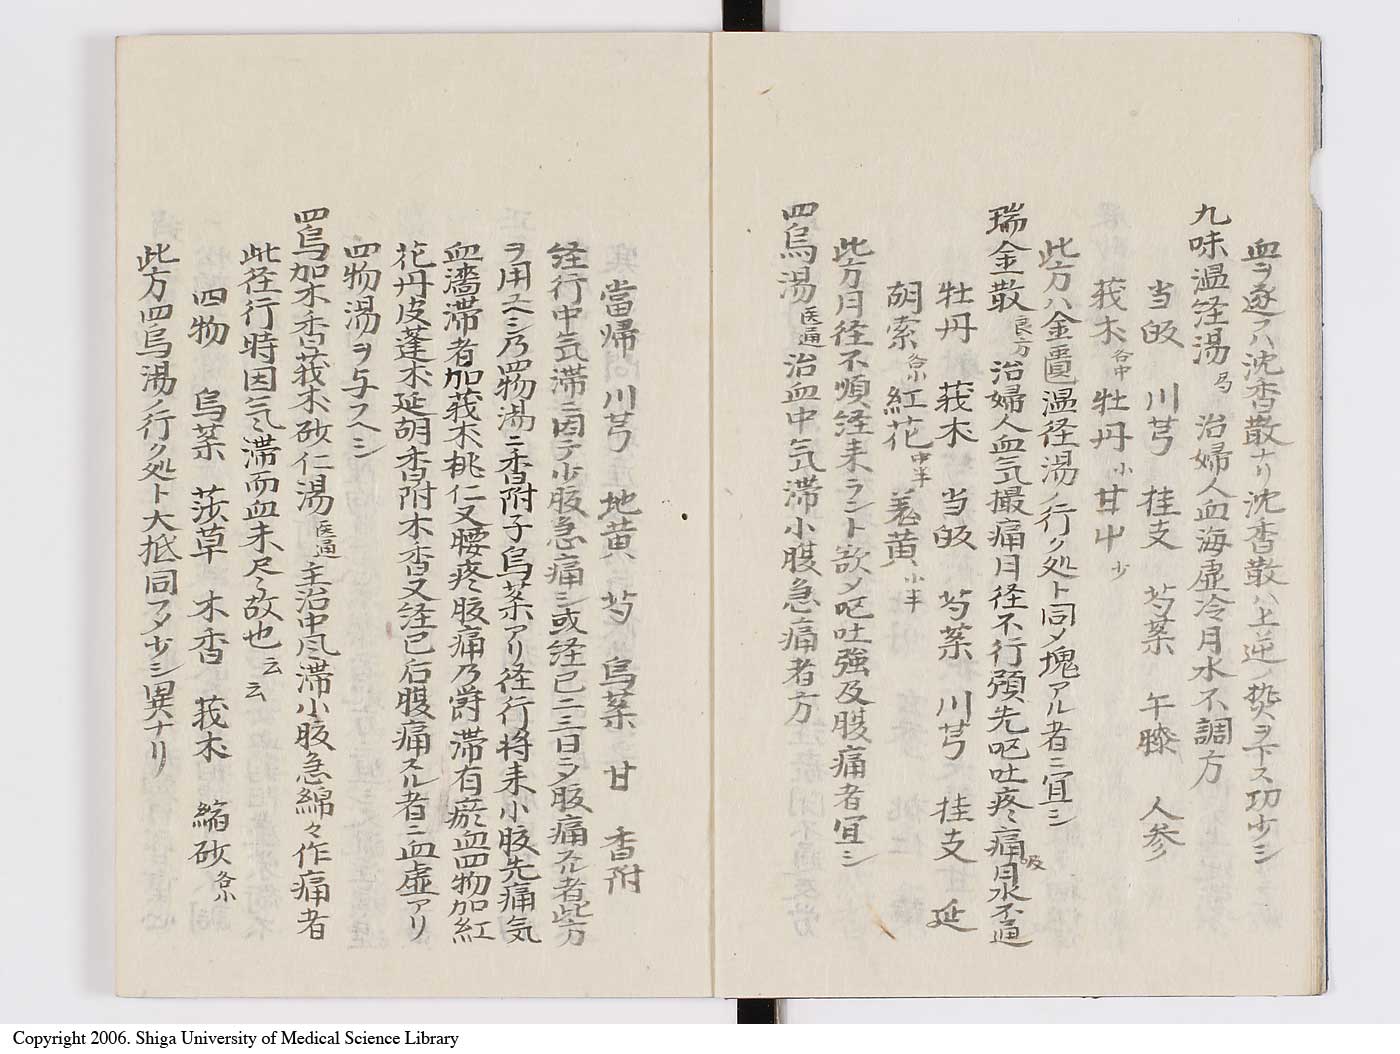 血ヲ逐フハ沈香散ナリ沈香散ハ上逆ノ熱ヲ下ス功少シ
九味温経湯 局 治婦人血海虚冷月水不調方
当皈 川芎 桂支 芍薬 午膝 人参
莪朮 各中 牡丹 小 甘屮 少
此方ハ金匱温径湯ノ行ク処ト同メ塊アル者ニ宜シ
瑞金散 良方 治婦人血気撮痛月径不行預先呕吐疼痛及月水不通
牡丹 莪朮 当皈 芍薬 川芎 桂支 延
胡索 各 紅花 中半 羌黄 小半
此方月径不順経来ラント欲メ呕吐強及腹痛者宜シ
四烏湯 医通 治血中気滞小腹急痛者方
當帰 川芎 地黄 芍 烏薬 甘 香附
経行中気滞ニ因テ少腹急痛シ或経已二三日シ腹痛スル者此方
ヲ用ユヘシ乃四物湯ニ香附子烏薬アリ径行将来小腹先痛気
血濇滞者加莪朮桃仁又腰疼腹痛乃欝滞有瘀血四物加紅
花丹皮蓬朮延胡香附木香又経已后腹痛スル者ニ血虚アリ
四物湯ヲ与フヘシ
四烏加木香莪朮砂仁湯 医通 主治中気滞小腹急綿々作痛者
此径行時因気滞而血未尽故也云云
四物 烏薬 莎草 木香 莪朮 縮砂 各
此方四烏湯ノ行ク処ト大抵同フメ少シ異ナリ
Copyright 2006. Shiga University of Medical Science Library